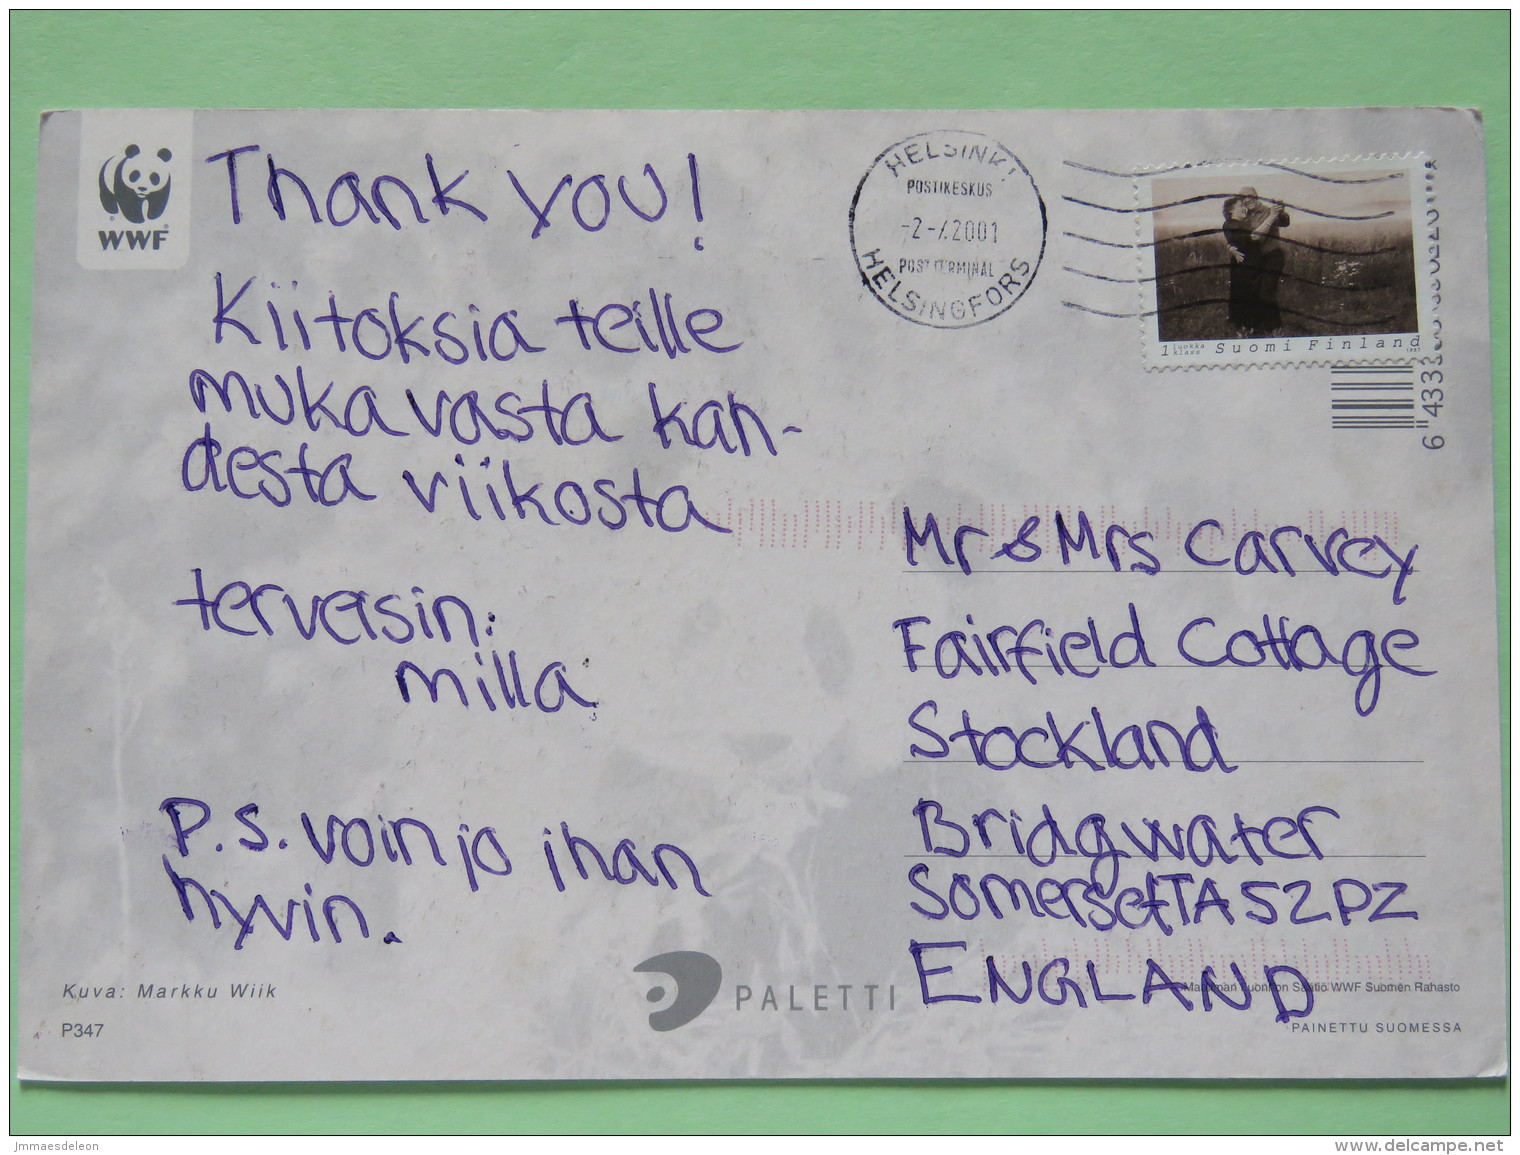 WWF
Thank you!
Kiitoksia teille
mukavasta kah-
desta viikosta
terveisin:
milla
P.S. voin jo ihan
hyvin.
Kuva: Markku Wiik
P347
PALETTI
HELSINKI
POSTIKESKUS
2001
POSTTERMINAL
HELSINGFORS
1 luokka klass Suomi Finland
1997
6 4333
Mr & Mrs Carvey
Fairfield Cottage
Stockland
Bridgwater
Somerset TA5 2PZ
ENGLAND
Maailman Luonnon Säätiö WWF Suomen Rahasto
PAINETTU SUOMESSA
jmmaesdeleon
www.delcampe.net